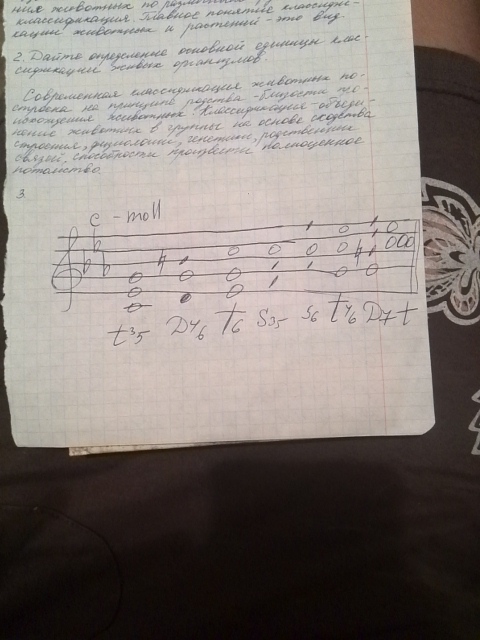 классификация. Главное понятие классифи-
кации животных и растений - это вид.
2. Дайте определение основной единицы клас-
сификации живых организмов.
Современная классификация животных по-
строена на принципе родства - близости про-
исхождения животных. Классификация - объеди
нение животных в группы на основе сходства
строения, физиологии, генетики, родственных
связей, способности произвести полноценное
потомство.
3.
c - moll
t35 D4/6 t6 S35 S6 t4/6 D7 t